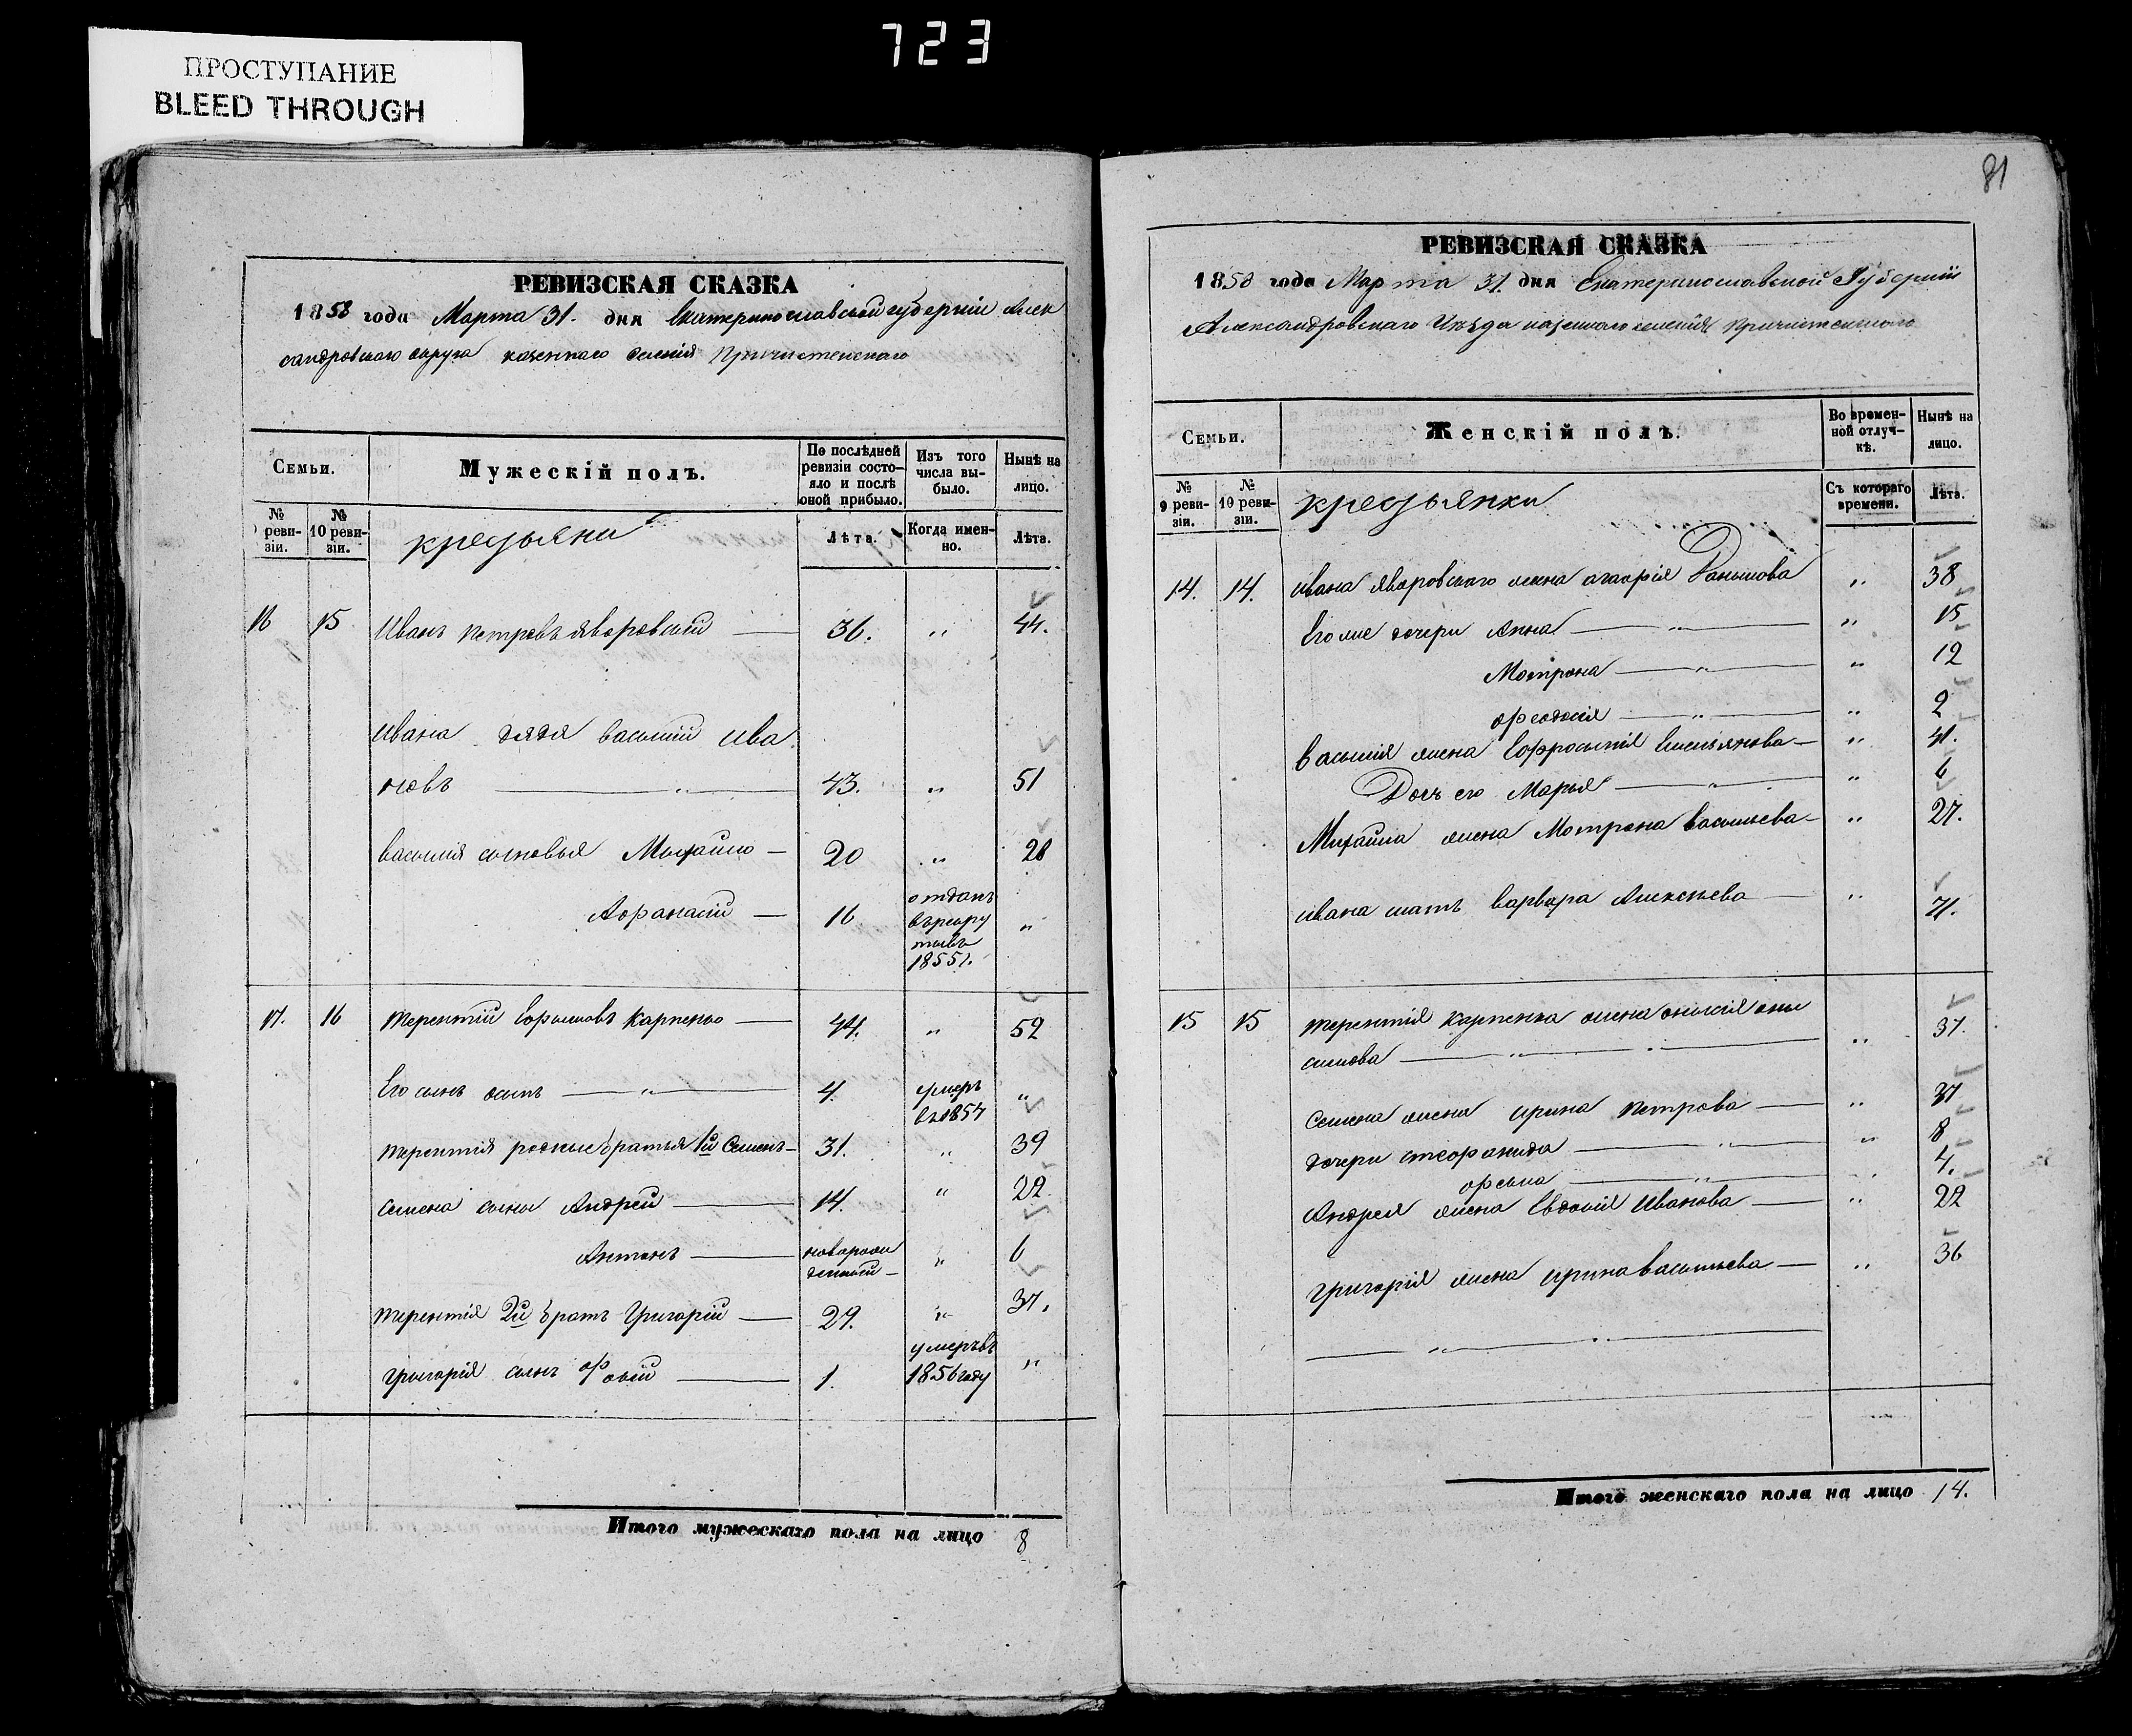 723
ПРОСТУПАНИЕ
BLEED THROUGH
РЕВИЗСКАЯ СКАЗКА
1858 года Марта 31. дня Екатеринославской губерніи Алек
сандровскаго округа казеннаго селенія Пречистенскаго
Семьи.
Мужескій полъ.
По послѣдней ревизіи состояло и послѣ оной прибыло.
Изъ того числа выбыло.
Нынѣ на лицо.
№ 9 ревизіи.
№ 10 ревизіи.
крестьяни
Лѣта.
Когда именно.
Лѣта.
16 15 Иванъ петровъ Яворовскій 36. " 44.
Ивана дядя василій ива
новъ " 43. " 51
василія сыновья Михайло 20 " 28
Афанасій 16 отданъ
въ рекру
ты въ
1855 г. "
17. 16 терентій Ефимовъ Карпенко 44. " 52
Его сынъ осипъ " 4. умеръ
въ 1854 "
терентія родные братья 1й Семенъ 31. " 39
семена сыны Андрей 14. " 22.
Антонъ новорож
денный " 6
терентія 2й братъ Григорій 29. " 37.
григорія сынъ 1. умеръ въ
1856 году "
Итого мужескаго пола на лицо 8
81
РЕВИЗСКАЯ СКАЗКА
1858 года Марта 31. дня Екатеринославской Губерніи
Александровскаго Уѣзда казеннаго селенія Пречистенскаго
Семьи.
Женскій полъ.
Во временной отлучкѣ.
Нынѣ на лицо.
№ 9 ревизіи.
№ 10 ревизіи.
крестьянки
Съ котораго времени.
Лѣта.
14. 14. Ивана Яворовскаго жена агафія " 38
Его же дочери Анна " " 15
Мотрона " " 12
феодосія " " 2
василія жена Ефросинія Емельянова " 41.
Дочь его Марья " " 6
Михайла жена Мотрона васильева " 27.
ивана мать варвара Алексѣева " 71.
15 15 терентія карпенка жена онисія они
симова " " " 37.
Семена жена ирина петрова " 37
дочери стефанида " " 8
" 4.
Андрея жена Евдокія Иванова " 22
григорія жена ирина васильева " 36
" "
Итого женскаго пола на лицо 14.